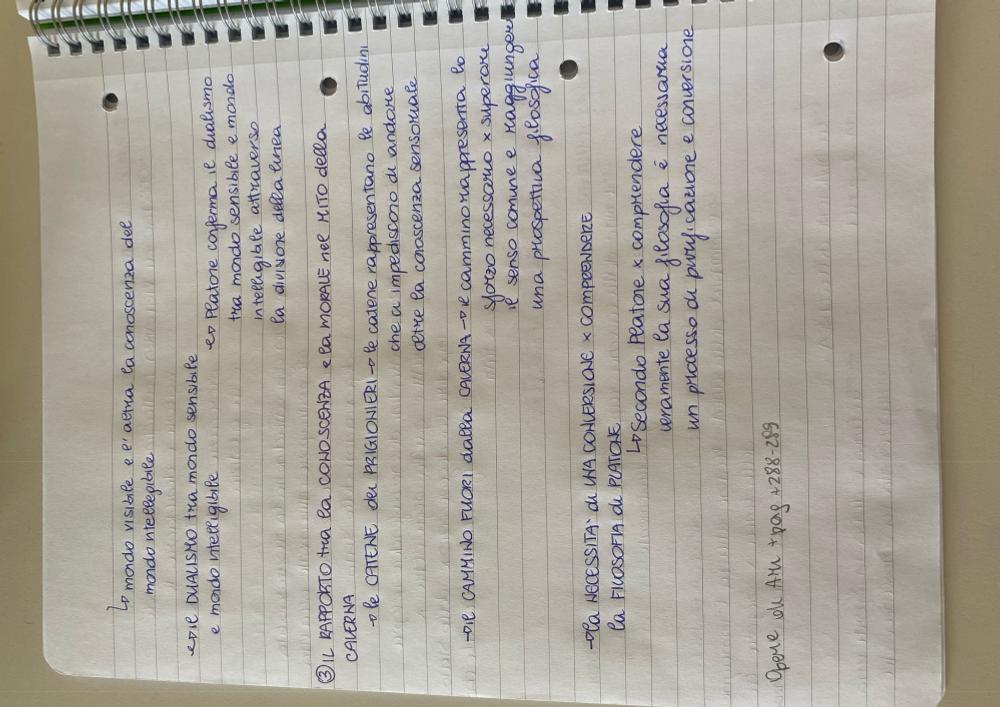 ↳ mondo visibile e l'altra la conoscenza del
mondo intellegibile
↔ il DUALISMO tra mondo sensibile
e mondo intelligibile
↔ Platone conferma il dualismo
tra mondo sensibile e mondo
intelligibile attraverso
la divisione della linea
③ IL RAPPORTO tra la CONOSCENZA e la MORALE nel MITO della
CAVERNA
→ le CATENE dei PRIGIONIERI → le catene rappresentano le abitudini
che ci impediscono di andare
oltre la conoscenza sensoriale
→ il CAMMINO FUORI dalla CAVERNA → il cammino rappresenta lo
sforzo necessario x superare
il senso comune e raggiungere
una prospettiva filosofica
→ la NECESSITA' di UNA CONVERSIONE x COMPRENDERE
la FILOSOFIA di PLATONE
↳ Secondo Platone x comprendere
veramente la sua filosofia é necessaria
un processo di purificazione e conversione
Opere di + pag + 288-289